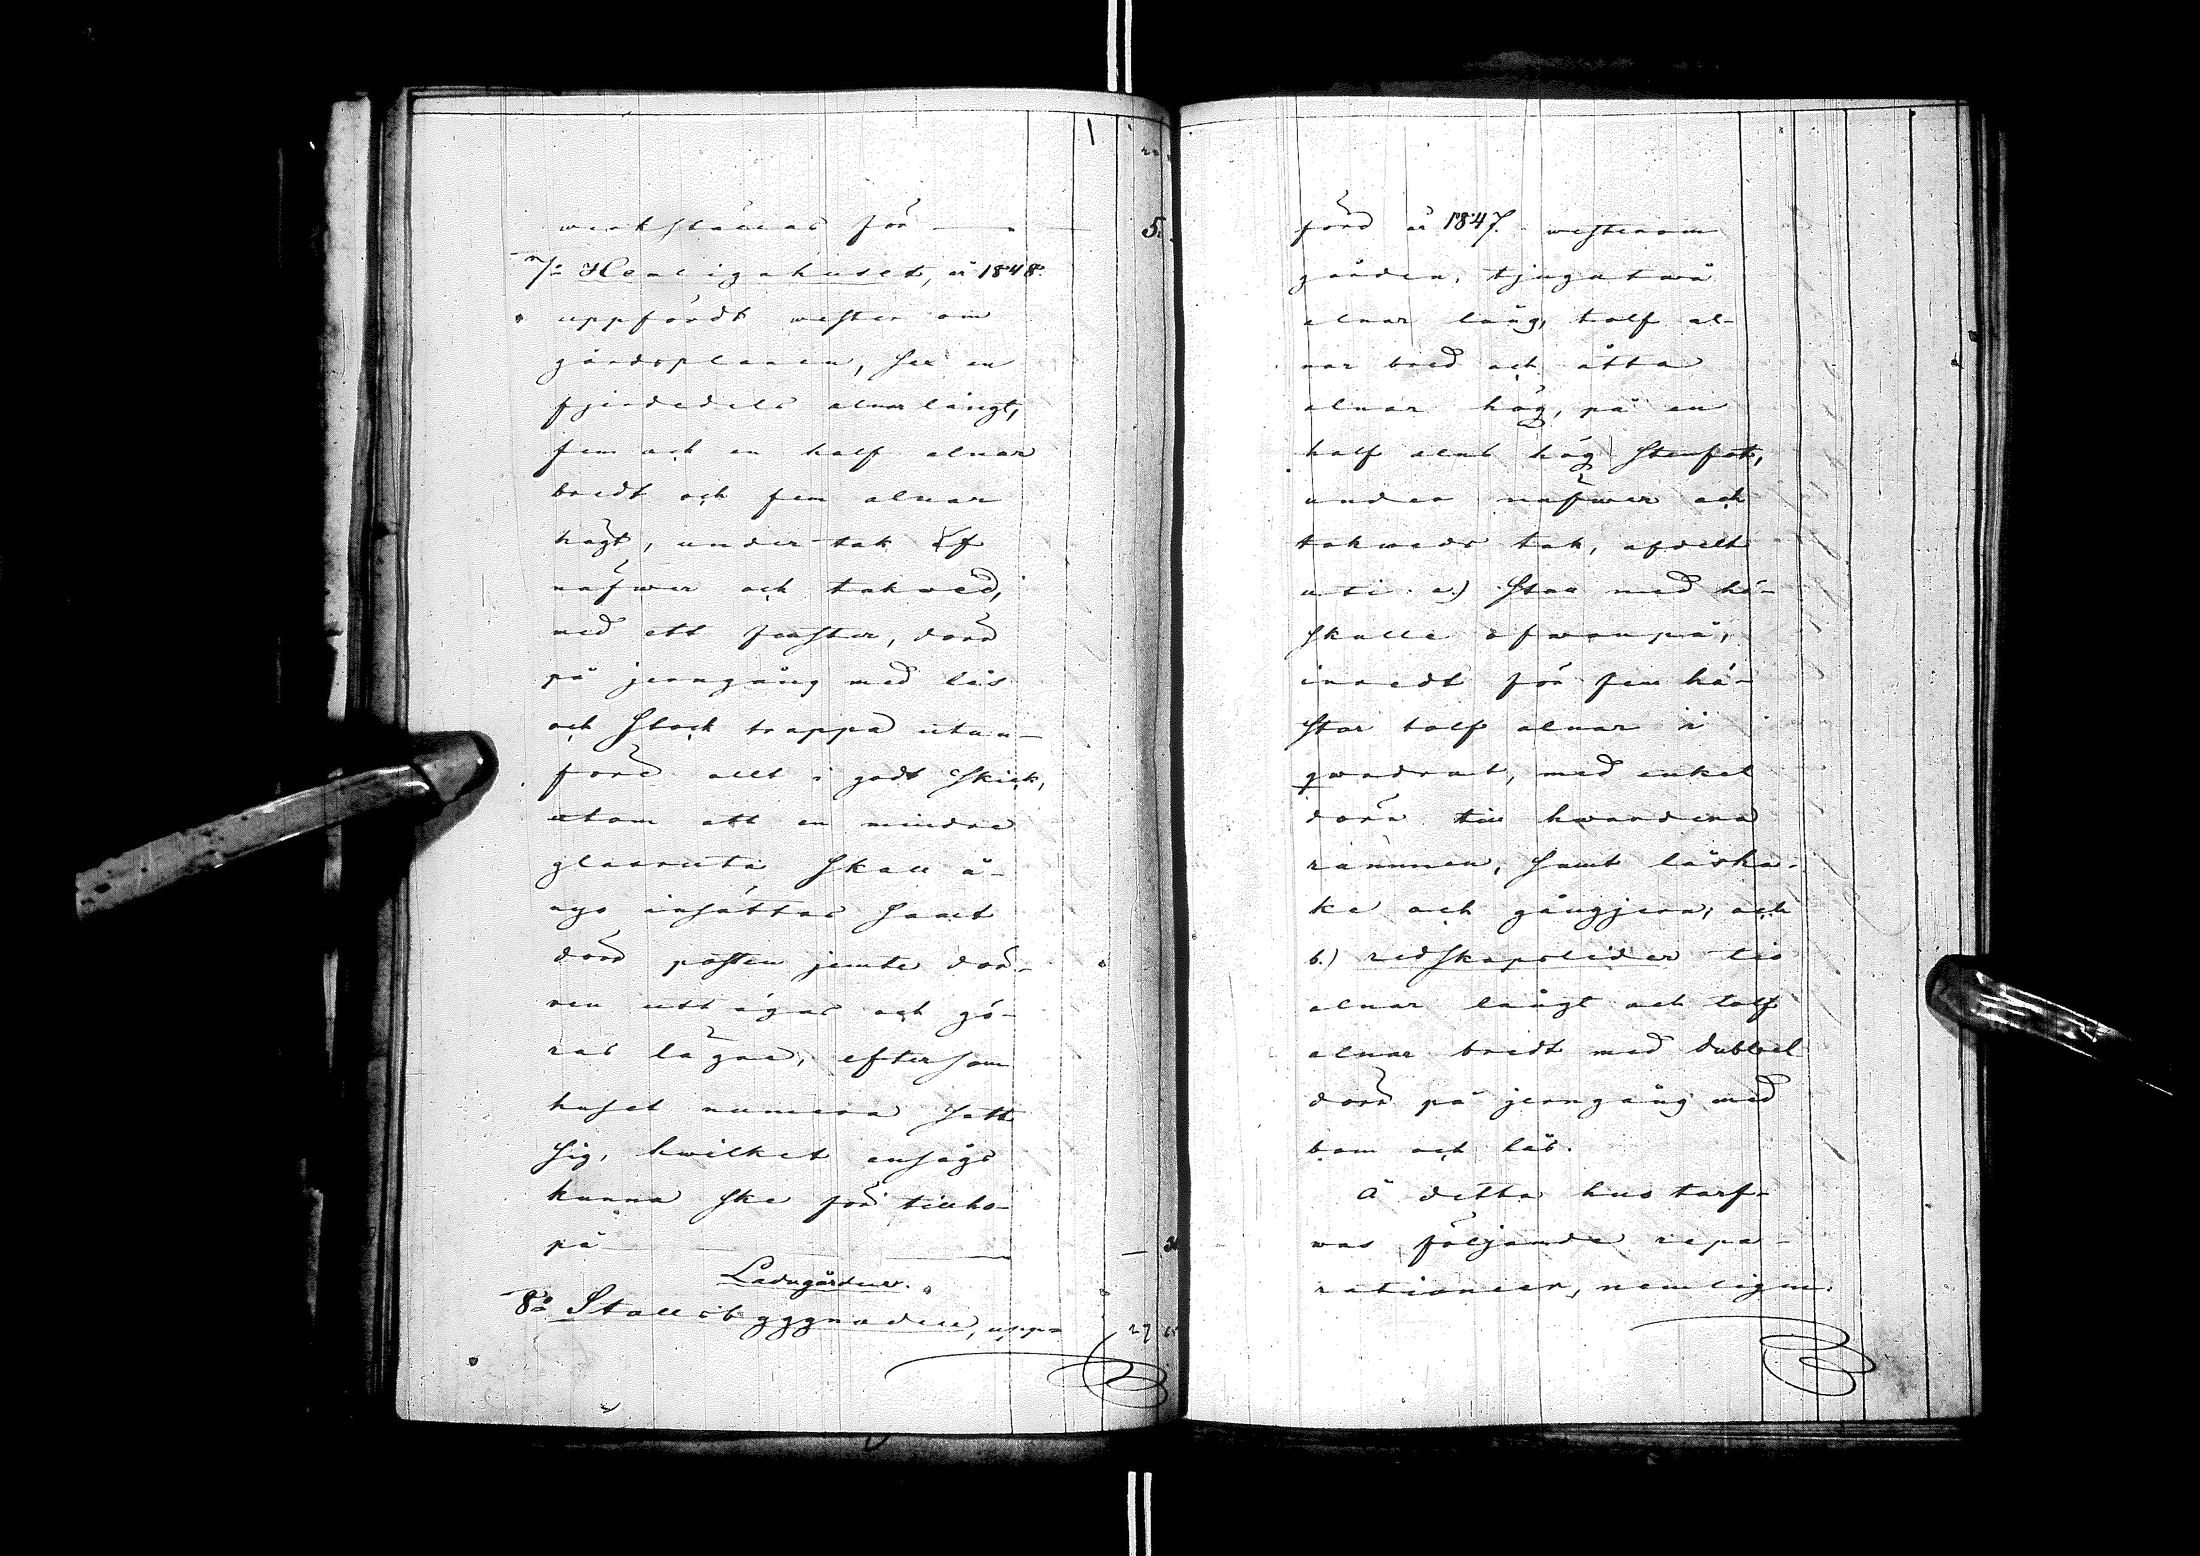 werkställas för — „ — 5.
7:o Hemligahuset, år 1848.
uppfördt wester om
gårdsplanen, sex en
fjerdedels alnar långt,
fem och en half alnar
bredt och fem alnar
högt, under tak af
näfwer och takwed,
med ett fenster, dörr
på jerngång med lås
och Stock trappa utan-
före allt i godt Skick,
utom att en mindre
glasruta Skall å-
nyo insättas Samt
dörr posten jemte dör-
ren uttagas och gö-
ras lägre, eftersom
huset numera Satt
Sig, hwilket ansågs
kunna Ske för tillho-
pa —
Ladugården.
8:o Stallsbyggnaden, upp-
27
förd år 1847. westerom
gården, tjugutwå
alnar lång, tolf al-
nar bred och åtta
alnar hög, på en
half alns hög Stenfot,
under näfwer och
takweds tak, afdelt
uti a.) Stall med hö-
skulle ofwanpå,
inredt för fem hä-
star tolf alnar i
qwadrat, med enkel
dörr till hwardera
rummen, Samt låsha-
ke och gångjern, och
b.) redskapslider tio
alnar långt och tolf
alnar bredt med dubbel
dörr på jerngång med
bom och lås.
Å detta hus tarf-
was följande repa-
rationer, nemligen: